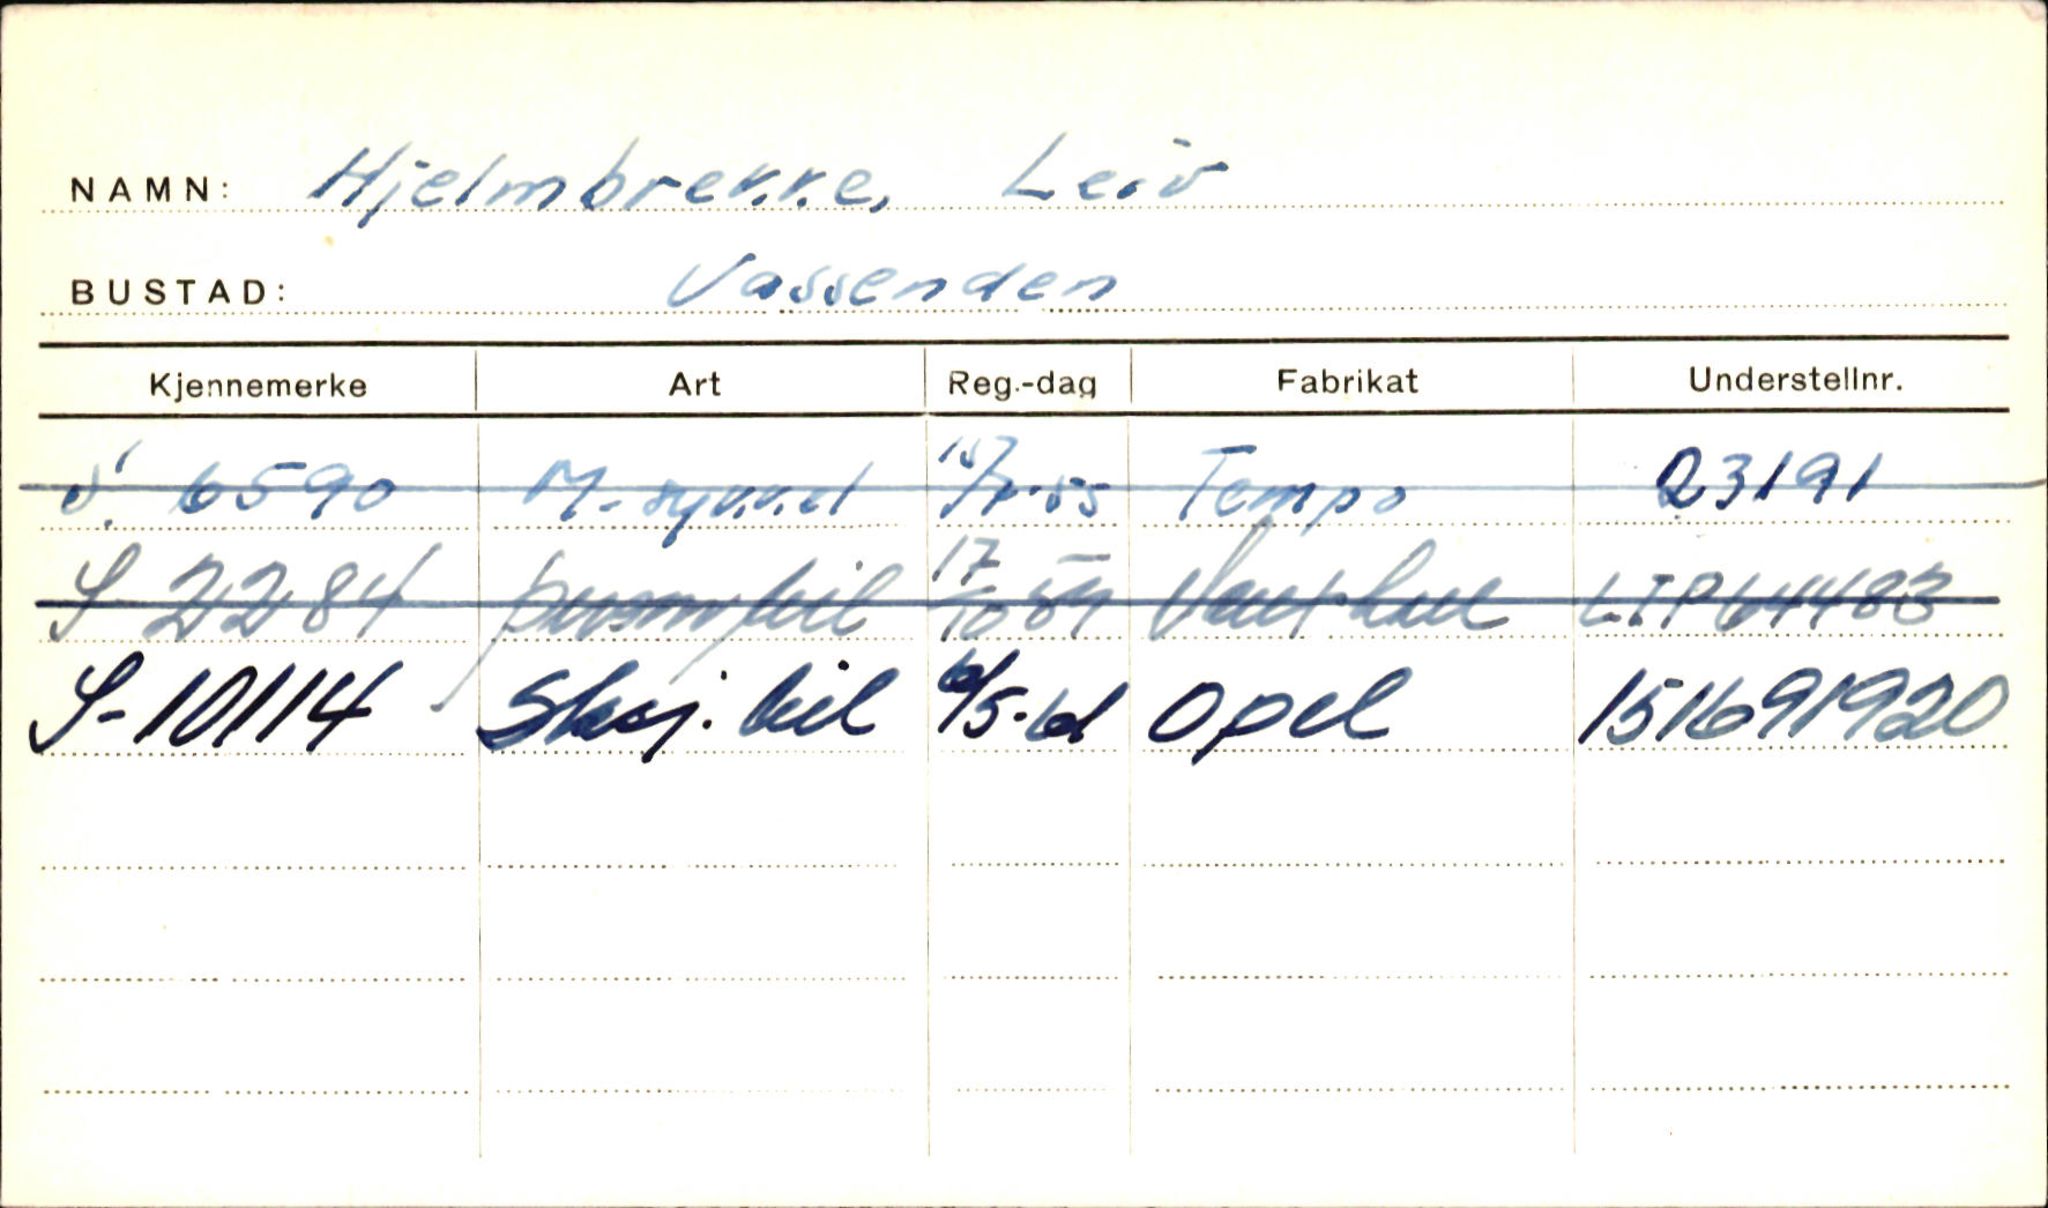 NAMN: Hjelmbrekke, Leiv
BUSTAD: Vassenden
Kjennemerke Art Reg.-dag Fabrikat Understellnr.
S. 6590 M-sykkel Tempo 23191
S 2284 personbil 17/10 59 Vauxhall LIP64483
S-10114 Skåp.bil /5-61 Opel 151691920